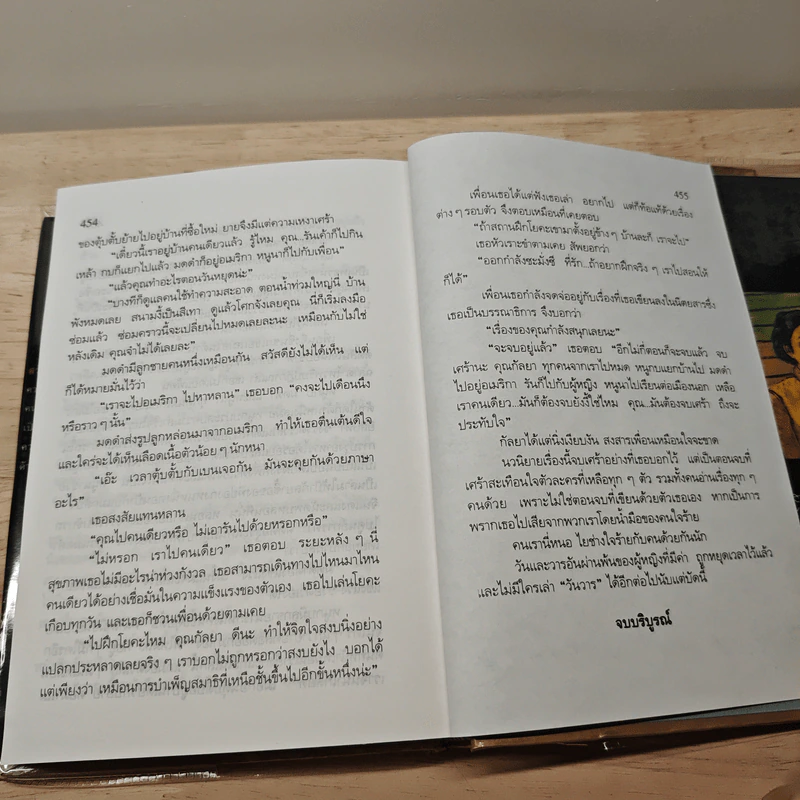 454
ของตุ้บตั้บย้ายไปอยู่บ้านที่ซื้อใหม่ ยายจึงมีแต่ความเหงาเศร้า
“เดี๋ยวนี้เราอยู่บ้านคนเดียวแล้ว รู้ไหม คุณ..รันเค้าก็ไปกิน
เหล้า กบก็แยกไปแล้ว มดดำก็อยู่อเมริกา หนูนาก็ไปกับเพื่อน”
“แล้วคุณทำอะไรตอนวันหยุดน่ะ”
“บางทีก็ดูแลคนใช้ทำความสะอาด ตอนน้ำท่วมใหญ่นี่ บ้าน
พังหมดเลย สนามงี้เป็นสีเทา ดูแล้วโศกจังเลยคุณ นี่ก็เริ่มลงมือ
ซ่อมแล้ว ซ่อมคราวนี้จะเปลี่ยนไปหมดเลยละนะ เหมือนกับไม่ใช่
หลังเดิม คุณจำไม่ได้เลยละ”
มดดำมีลูกชายคนหนึ่งเหมือนกัน สวัสดียังไม่ได้เห็น แต่
ก็ได้หมายมั่นไว้ว่า
“เราจะไปอเมริกา ไปหาหลาน” เธอบอก “คงจะไปเดือนนึง
หรือราว ๆ นั้น”
มดดำส่งรูปลูกหล่อนมาจากอเมริกา ทำให้เธอตื่นเต้นดีใจ
และใคร่จะได้เห็นเลือดเนื้อตัวน้อย ๆ นักหนา
“เอ๊ะ เวลาตุ้บตั้บกับเบนเจอกัน มันจะคุยกันด้วยภาษา
อะไร”
เธอสงสัยแทนหลาน
“คุณไปคนเดียวหรือ ไม่เอารันไปด้วยหรอกหรือ”
“ไม่หรอก เราไปคนเดียว” เธอตอบ ระยะหลัง ๆ นี้
สุขภาพเธอไม่มีอะไรน่าห่วงกังวล เธอสามารถเดินทางไปไหนมาไหน
คนเดียวได้อย่างเชื่อมั่นในความแข็งแรงของตัวเอง เธอไปเล่นโยคะ
เกือบทุกวัน และเธอก็ชวนเพื่อนด้วยตามเคย
“ไปฝึกโยคะไหม คุณกัลยา ดีนะ ทำให้จิตใจสงบนิ่งอย่าง
แปลกประหลาดเลยจริง ๆ เราบอกไม่ถูกหรอกว่าสงบยังไง บอกได้
แต่เพียงว่า เหมือนการบำเพ็ญสมาธิที่เหนือชั้นขึ้นไปอีกขั้นหนึ่งน่ะ”
455
เพื่อนเธอได้แต่ฟังเธอเล่า อยากไป แต่ก็ท้อแท้ด้วยเรื่อง
ต่าง ๆ รอบตัว จึงตอบเหมือนที่เคยตอบ
“ถ้าสถานฝึกโยคะเขามาตั้งอยู่ข้าง ๆ บ้านละก็ เราจะไป”
เธอหัวเราะขำตามเคย สัพยอกว่า
“ออกกำลังซะมั่งซี ที่รัก..ถ้าอยากฝึกจริง ๆ เราไปสอนให้
ก็ได้”
เพื่อนเธอกำลังจดจ่ออยู่กับเรื่องที่เธอเขียนลงในนิตยสารซึ่ง
เธอเป็นบรรณาธิการ จึงบอกว่า
“เรื่องของคุณกำลังสนุกเลยนะ”
“จะจบอยู่แล้ว” เธอตอบ “อีกไม่กี่ตอนก็จะจบแล้ว จบ
เศร้านะ คุณกัลยา ทุกคนจากเราไปหมด หนูกบแยกบ้านไป มดดำ
ไปอยู่อเมริกา รันก็ไปกับผู้หญิง หนูนาไปเรียนต่อเมืองนอก เหลือ
เราคนเดียว..มันก็ต้องจบยังงี้ใช่ไหม คุณ..มันต้องจบเศร้า ถึงจะ
ประทับใจ”
กัลยาได้แต่นิ่งเงียบงัน สงสารเพื่อนเหมือนใจจะขาด
นวนิยายเรื่องนี้จบเศร้าอย่างที่เธอบอกไว้ แต่เป็นตอนจบที่
เศร้าสะเทือนใจตัวละครที่เหลือทุก ๆ ตัว รวมทั้งคนอ่านเรื่องทุก ๆ
คนด้วย เพราะไม่ใช่ตอนจบที่เขียนด้วยตัวเธอเอง หากเป็นการ
พรากเธอไปเสียจากพวกเราโดยน้ำมือของคนใจร้าย
คนเรานี่หนอ ไยช่างใจร้ายกับคนด้วยกันนัก
วันและวารอันผ่านพ้นของผู้หญิงที่มีค่า ถูกหยุดเวลาไว้แล้ว
และไม่มีใครเล่า “วันวาร” ได้อีกต่อไปนับแต่บัดนี้
จบบริบูรณ์